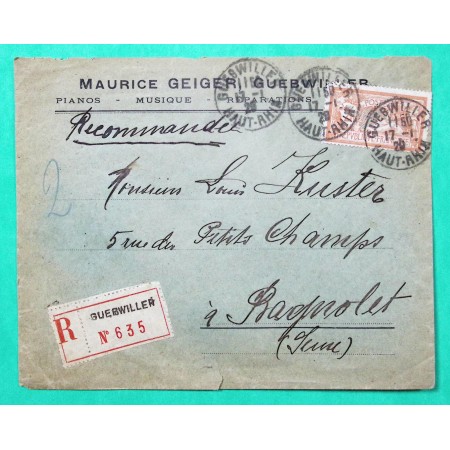 MAURICE GEIGER, GUEBWILLER
PIANOS - MUSIQUE - RÉPARATIONS
Recommandée
GUEBWILLER
HAUT-RHIN
GUEBWILLER
HAUT-RHIN
GUEBWILLER
17-1
20
HAUT-RHIN
2
Monsieur Louis Kuster
5 rue des Petits Champs
à Bagnolet
(Seine)
R
GUEBWILLER
Nº 635